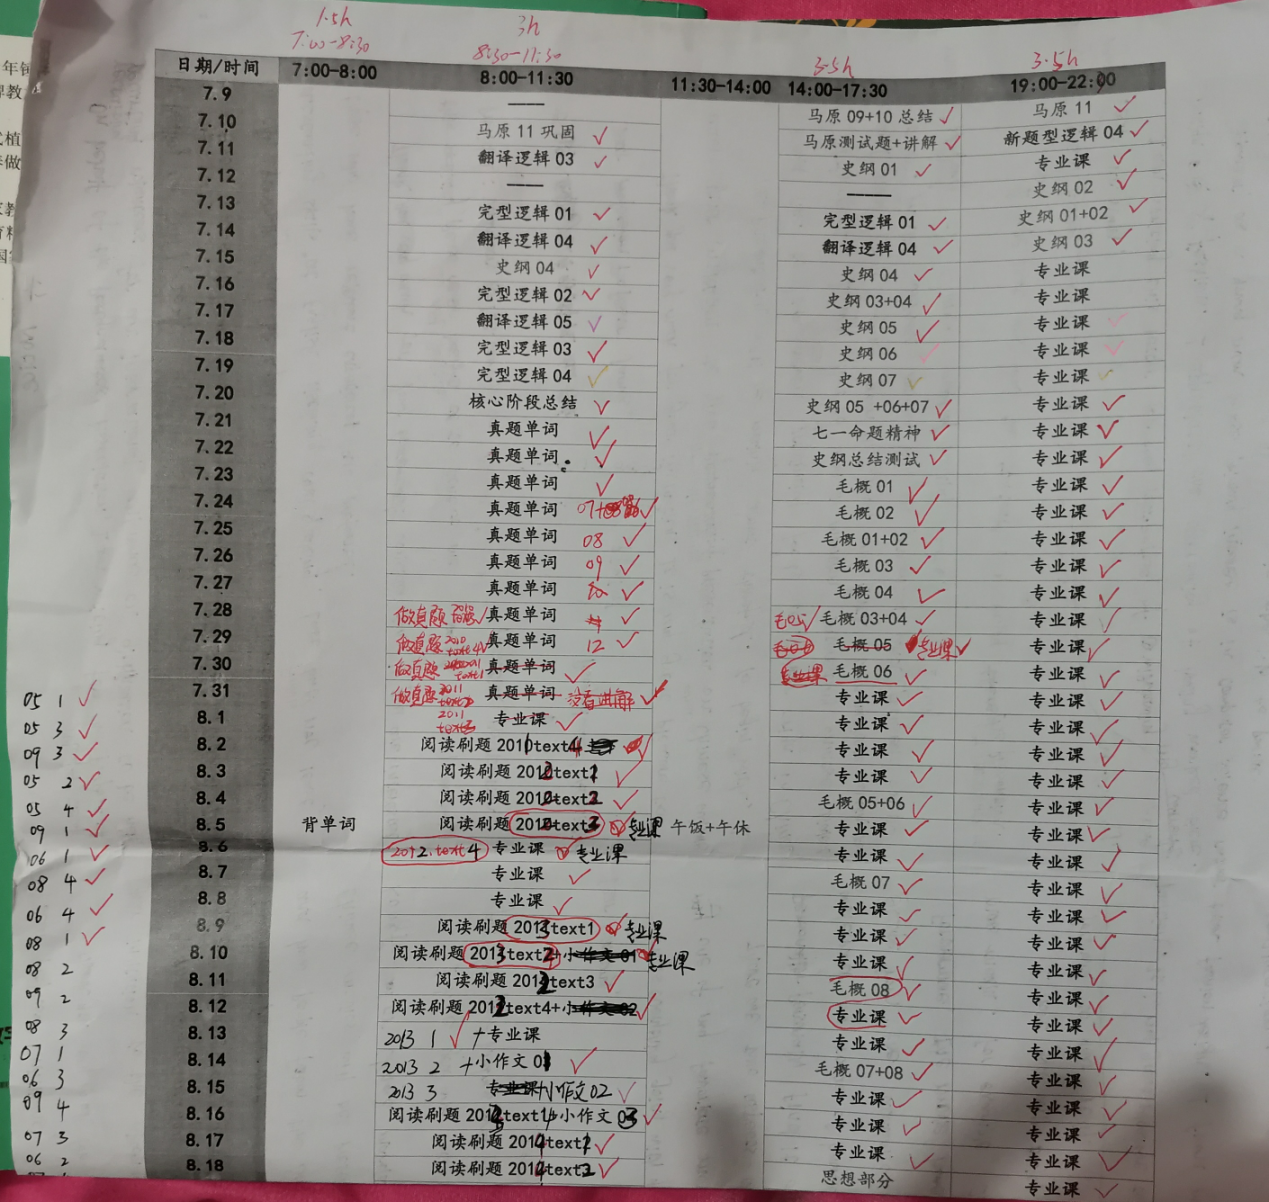 1.5h 3h 3.5h 3.5h
7:00-8:30 8:30-11:30
日期/时间 7:00-8:00 8:00-11:30 11:30-14:00 14:00-17:30 19:00-22:00
7.9 —— 马原 09+10 总结 ✓ 马原 11 ✓
7.10 马原 11 巩固 ✓ 马原测试题+讲解 ✓ 新题型逻辑 04 ✓
7.11 翻译逻辑 03 ✓ 史纲 01 ✓ 专业课 ✓
7.12 —— —— 史纲 02 ✓
7.13 完型逻辑 01 ✓ 完型逻辑 01 ✓ 史纲 01+02 ✓
7.14 翻译逻辑 04 ✓ 翻译逻辑 04 ✓ 史纲 03 ✓
7.15 史纲 04 ✓ 史纲 04 ✓ 专业课
7.16 完型逻辑 02 ✓ 史纲 03+04 ✓ 专业课
7.17 翻译逻辑 05 ✓ 史纲 05 ✓ 专业课 ✓
7.18 完型逻辑 03 ✓ 史纲 06 ✓ 专业课 ✓
7.19 完型逻辑 04 ✓ 史纲 07 ✓ 专业课 ✓
7.20 核心阶段总结 ✓ 史纲 05 +06+07 ✓ 专业课 ✓
7.21 真题单词 ✓ 七一命题精神 ✓ 专业课 ✓
7.22 真题单词 ✓ 史纲总结测试 ✓ 专业课 ✓
7.23 真题单词 ✓ 毛概 01 ✓ 专业课 ✓
7.24 真题单词 07+ ✓ 毛概 02 ✓ 专业课 ✓
7.25 真题单词 08 ✓ 毛概 01+02 ✓ 专业课 ✓
7.26 真题单词 09 ✓ 毛概 03 ✓ 专业课 ✓
7.27 真题单词 ✓ 毛概 04 ✓ 专业课 ✓
7.28 做真题 ✓ 真题单词 ✓ 毛05 ✓ 毛概 03+04 ✓ 专业课 ✓
7.29 做真题 2010 text4 ✓ 真题单词 12 ✓ 毛概 05 专业课 ✓ 专业课 ✓
7.30 做真题 text1 真题单词 ✓ 专业课 毛概 06 ✓ 专业课 ✓
05 1 ✓ 7.31 做真题 2011 真题单词 没看讲解 ✓ 专业课 ✓ 专业课 ✓
05 3 ✓ 8.1 2011 text3 专业课 ✓ 专业课 ✓ 专业课 ✓
09 3 ✓ 8.2 阅读刷题 2011text4 ✓ 专业课 ✓ 专业课 ✓
05 2 ✓ 8.3 阅读刷题 2012text1 ✓ 专业课 ✓ 专业课 ✓
05 4 ✓ 8.4 阅读刷题 2012text2 ✓ 毛概 05+06 ✓ 专业课 ✓
09 1 ✓ 8.5 背单词 阅读刷题 2012text3 ✓ 专业课 午饭+午休 专业课 ✓ 专业课 ✓
06 1 ✓ 8.6 2012.text4 专业课 ✓ 专业课 专业课 ✓ 专业课 ✓
08 4 ✓ 8.7 专业课 ✓ 毛概 07 ✓ 专业课 ✓
06 4 ✓ 8.8 专业课 ✓ 专业课 ✓ 专业课 ✓
08 1 ✓ 8.9 阅读刷题 2013text1 ✓ 专业课 专业课 ✓ 专业课 ✓
08 2 8.10 阅读刷题 2013text2+小作文 01 专业课 专业课 ✓ 专业课 ✓
09 2 8.11 阅读刷题 2012text3 ✓ 毛概 08 ✓ 专业课 ✓
08 3 8.12 阅读刷题 2012text4+小作文 02 ✓ 专业课 ✓ 专业课 ✓
07 1 8.13 2013 1 ✓ +专业课 专业课 ✓ 专业课 ✓
06 3 8.14 2013 2 +小作文 01 ✓ 毛概 07+08 ✓ 专业课 ✓
09 4 8.15 2013 3 专业课+小作文02 ✓ 专业课 ✓ 专业课 ✓
07 3 8.16 阅读刷题 2013text4+小作文 03 ✓ 专业课 ✓ 专业课 ✓
06 2 8.17 阅读刷题 2014text1 ✓ 专业课 ✓ 专业课 ✓
8.18 阅读刷题 2014text2 ✓ 思想部分 专业课 ✓